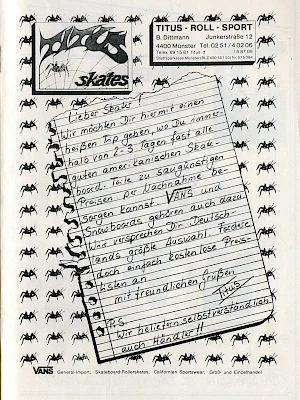 TITUS
skates
TITUS · ROLL · SPORT
B. Dittmann Junkerstraße 12
4400 Münster Tel. 02 51 / 4 02 06
Lieber Skater!
Wir möchten Dir hiermit einen
heißen Tip geben, wo Du inner-
halb von 2-3 Tagen fast alle
guten amerikanischen Skate-
board-Teile zu saugünstigen
Preisen per Nachnahme be-
sorgen kannst. VANS und
Snowboards gehören auch dazu.
Wir versprechen Dir Deutsch-
lands größte Auswahl. Fordere
doch einfach kostenlose Preis-
listen an.
mit freundlichen Grüßen
Titus
P.S.
Wir beliefern selbstverständlich
auch Händler!!
VANS General-Import; Skateboard-Rollerskates; Californien Sportswear; Groß- und Einzelhandel